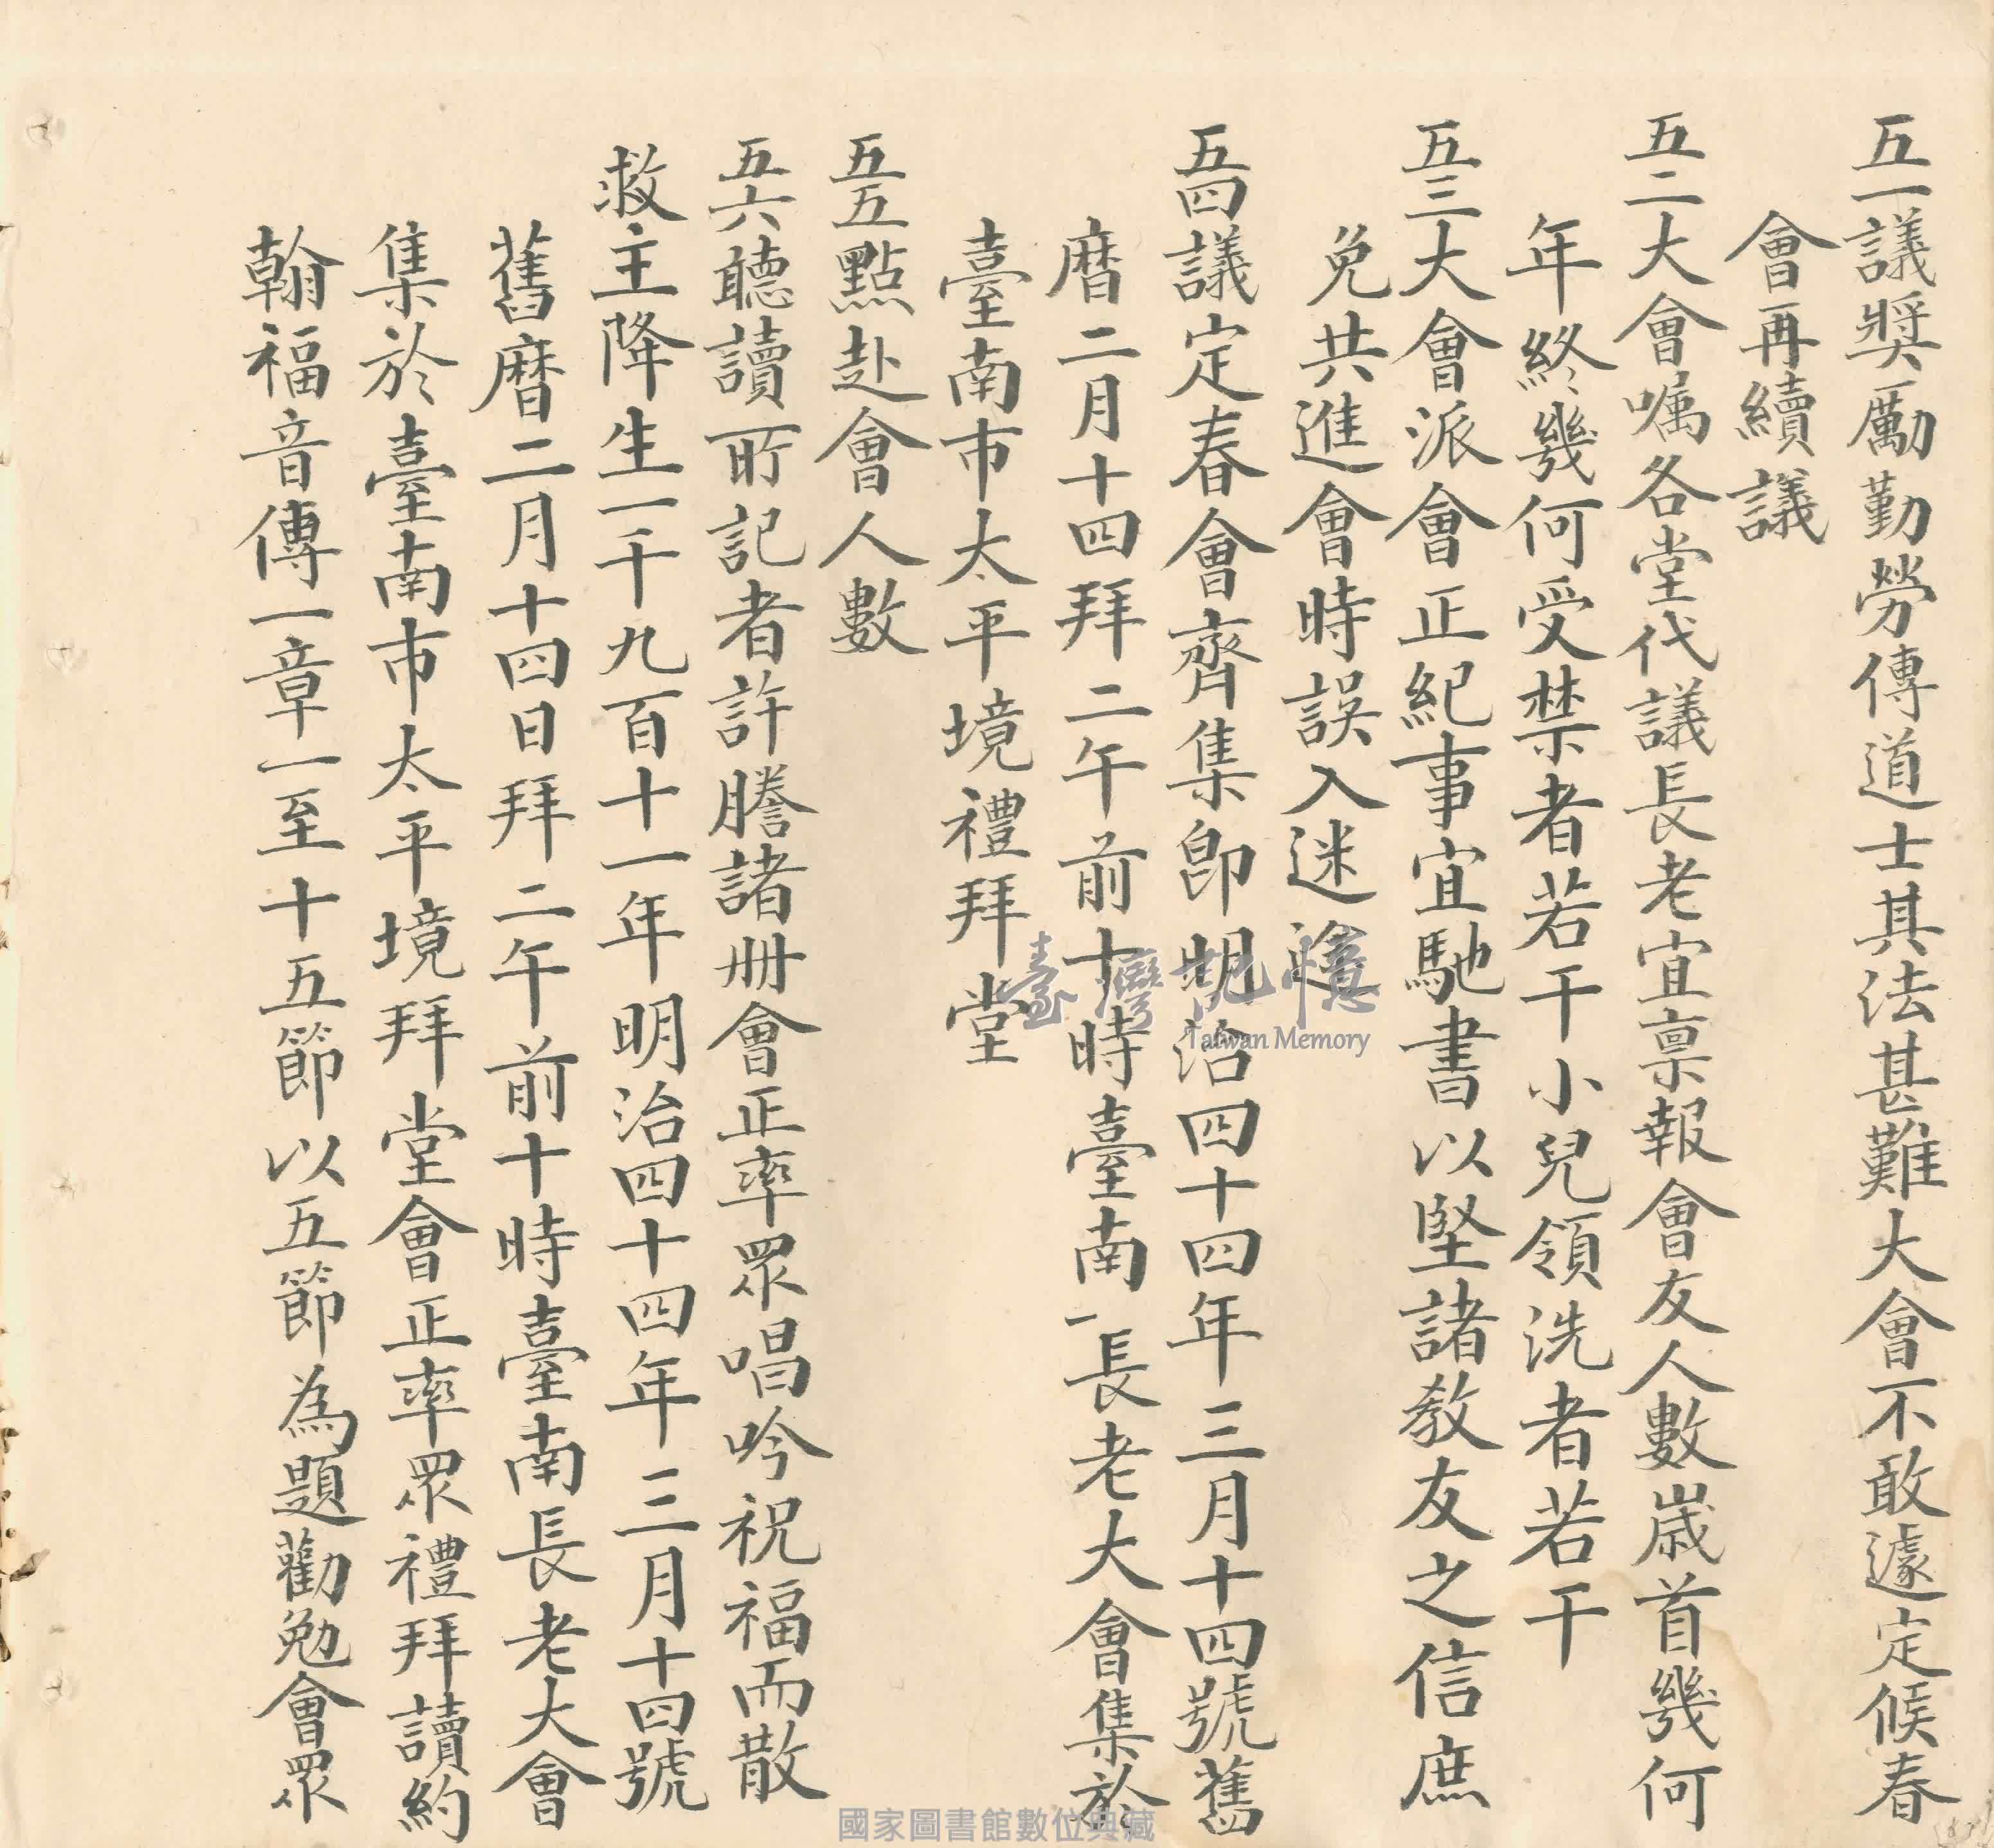 五一議獎勵勤勞傳道士其法甚難大會不敢遽定候春
會再續議
五二大會囑各堂代議長老宜禀報會友人數歲首幾何
年終幾何受禁者若干小兒領洗者若干
五三大會派會正紀事宜馳書以堅諸教友之信庶
免共進會時誤入迷途
五四議定春會齊集卽明治四十四年三月十四號舊
曆二月十四拜二午前十時臺南長老大會集於
臺南市太平境禮拜堂
五五點赴會人數
五六聽讀所記者許謄諸冊會正率眾唱吟祝福而散
救主降生一千九百十一年明治四十四年三月十四號
舊曆二月十四日拜二午前十時臺南長老大會
集於臺南市太平境拜堂會正率眾禮拜讀約
翰福音傳一章一至十五節以五節為題勸勉會眾
臺灣記憶
Taiwan Memory
國家圖書館數位典藏